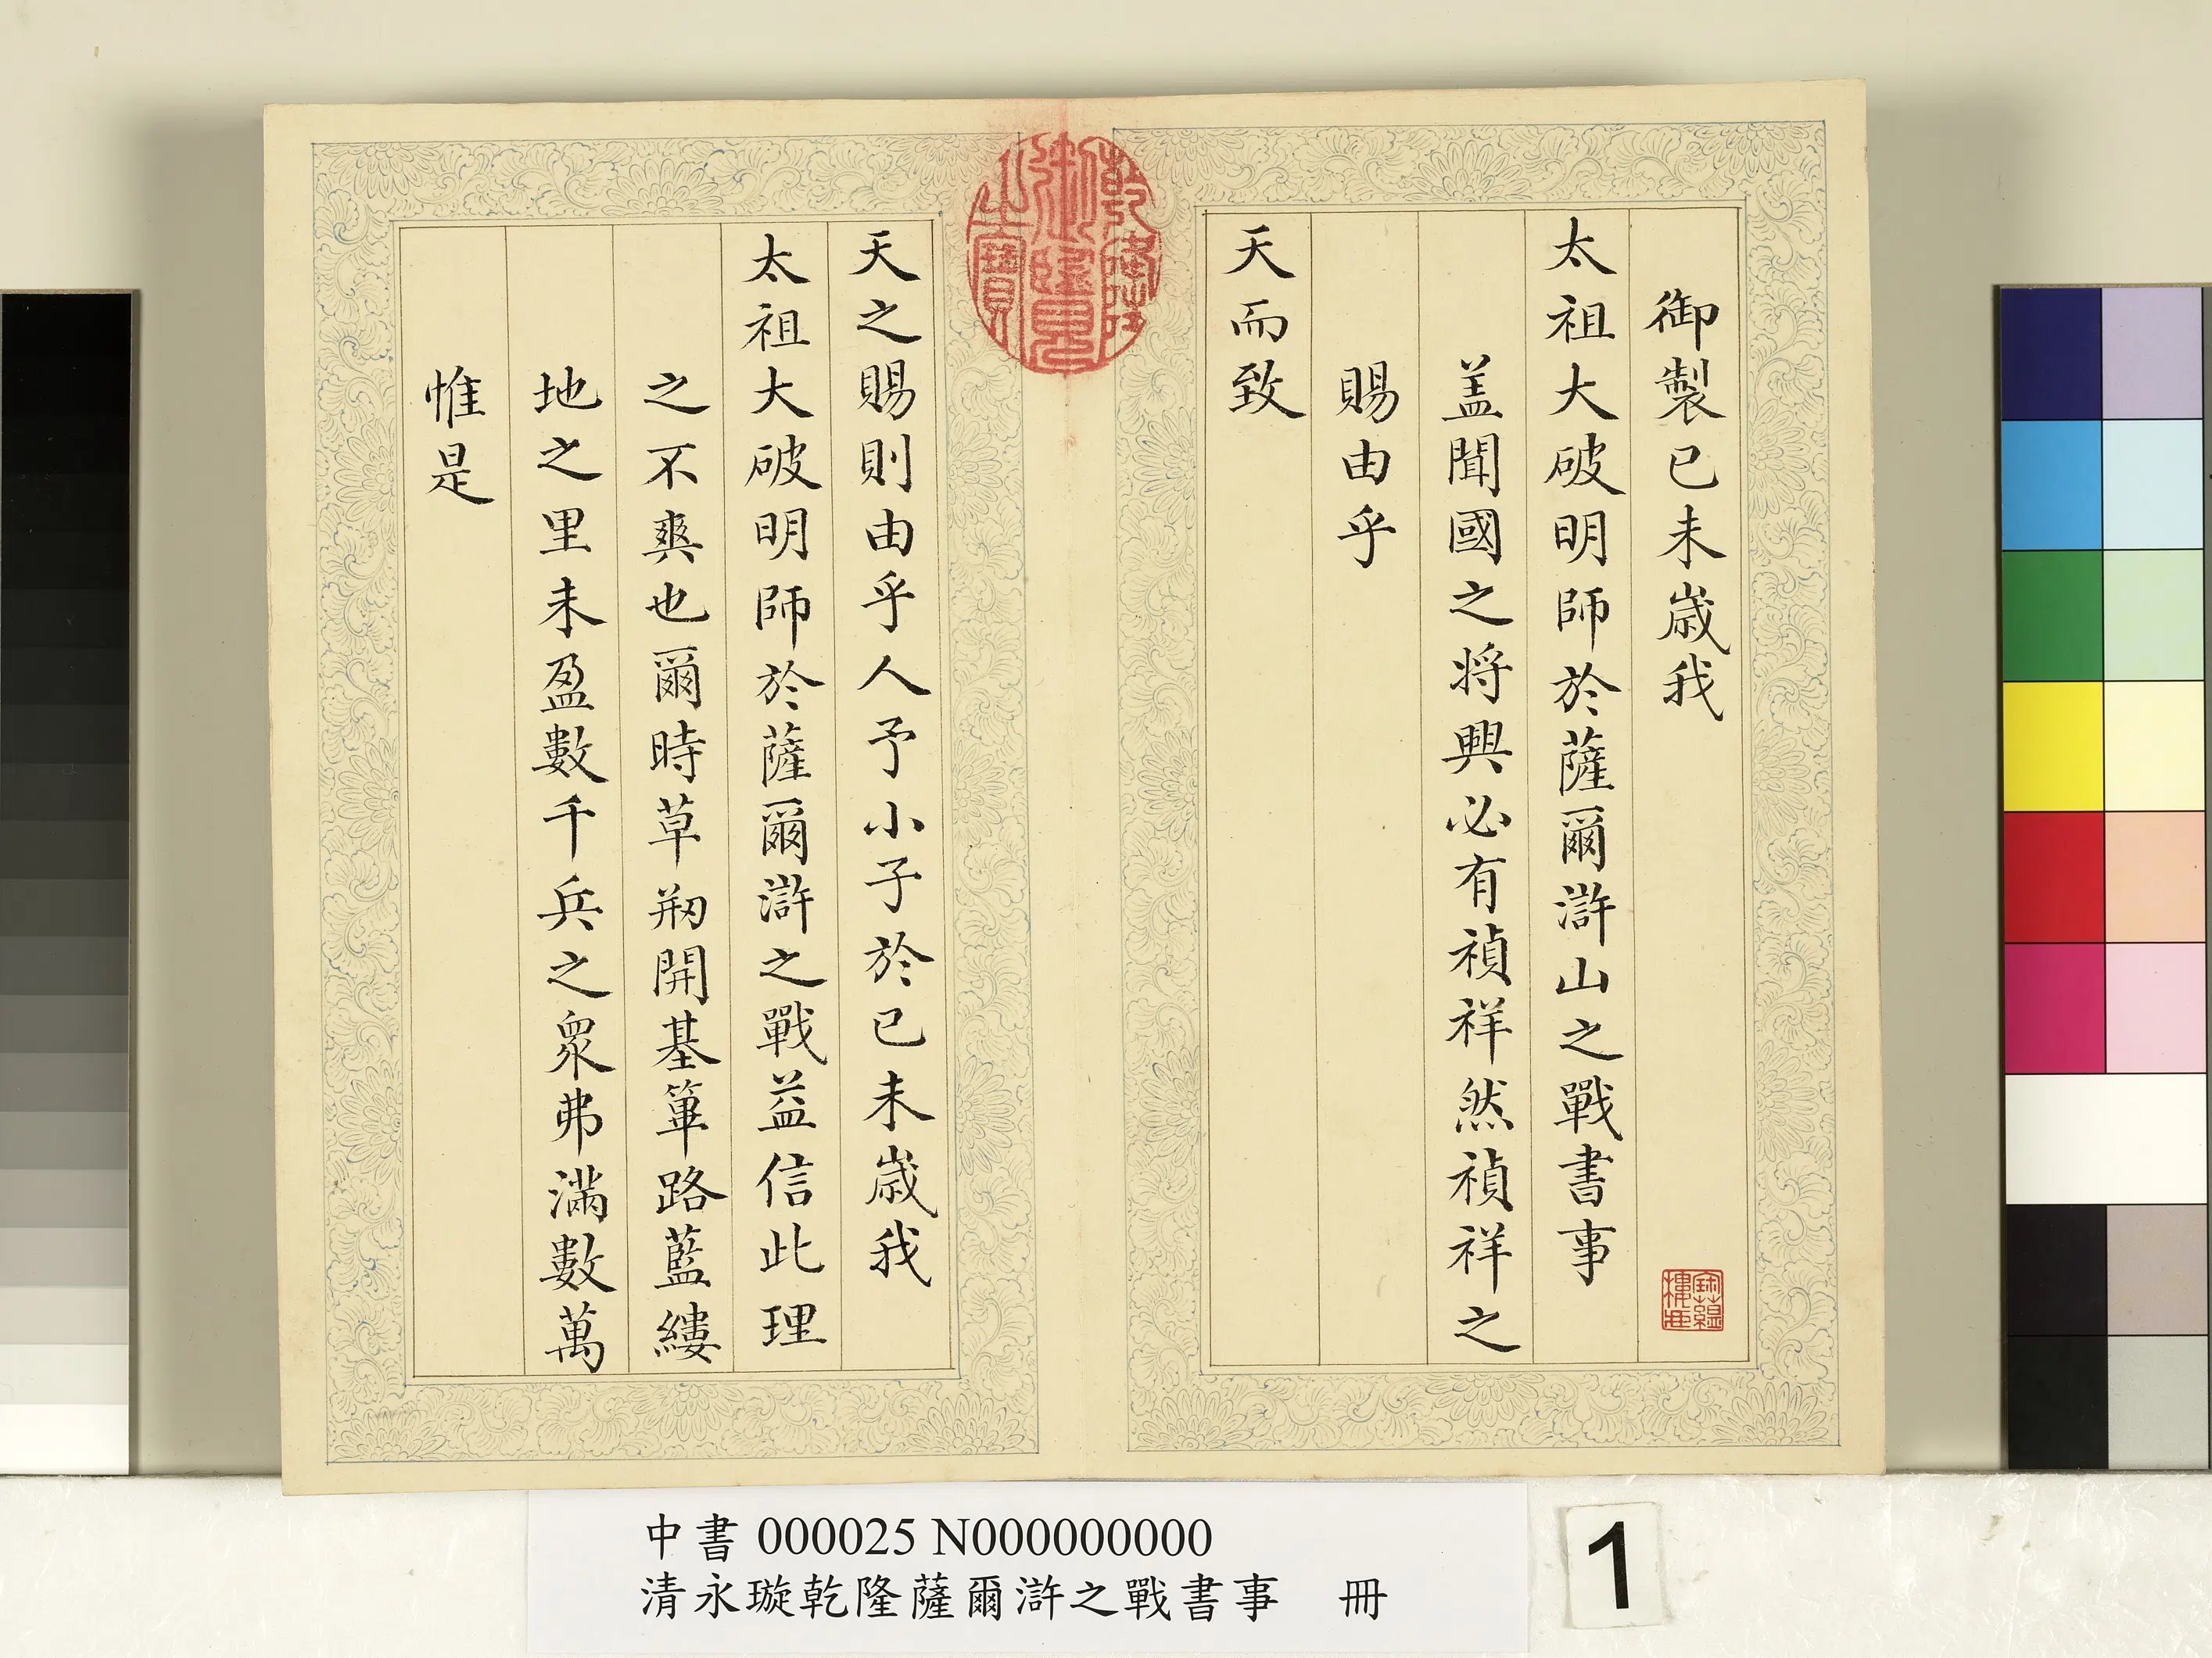 御製己未歲我
太祖大破明師於薩爾滸山之戰書事
盖聞國之將興必有禎祥然禎祥之
賜由乎
天而致
天之賜則由乎人予小子於己未歲我
太祖大破明師於薩爾滸之戰益信此理
之不爽也爾時草刱開基篳路藍縷
地之里未盈數千兵之眾弗滿數萬
惟是
乾隆御覽之寶
寶蘊樓藏
中書 000025 N000000000
清永璇乾隆薩爾滸之戰書事 冊
1